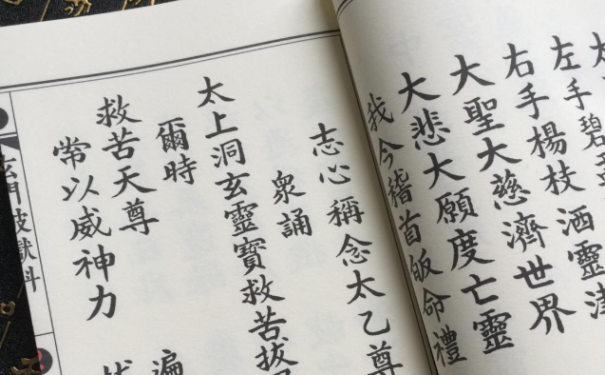 左手碧
右手楊枝洒靈津
大聖大慈濟世界
大悲大願度亡靈
我今稽首皈命禮
志心稱念太乙尊
衆誦
太上洞玄靈寶救苦拔
爾時
救苦天尊 遍
常以威神力
玄門破獄科